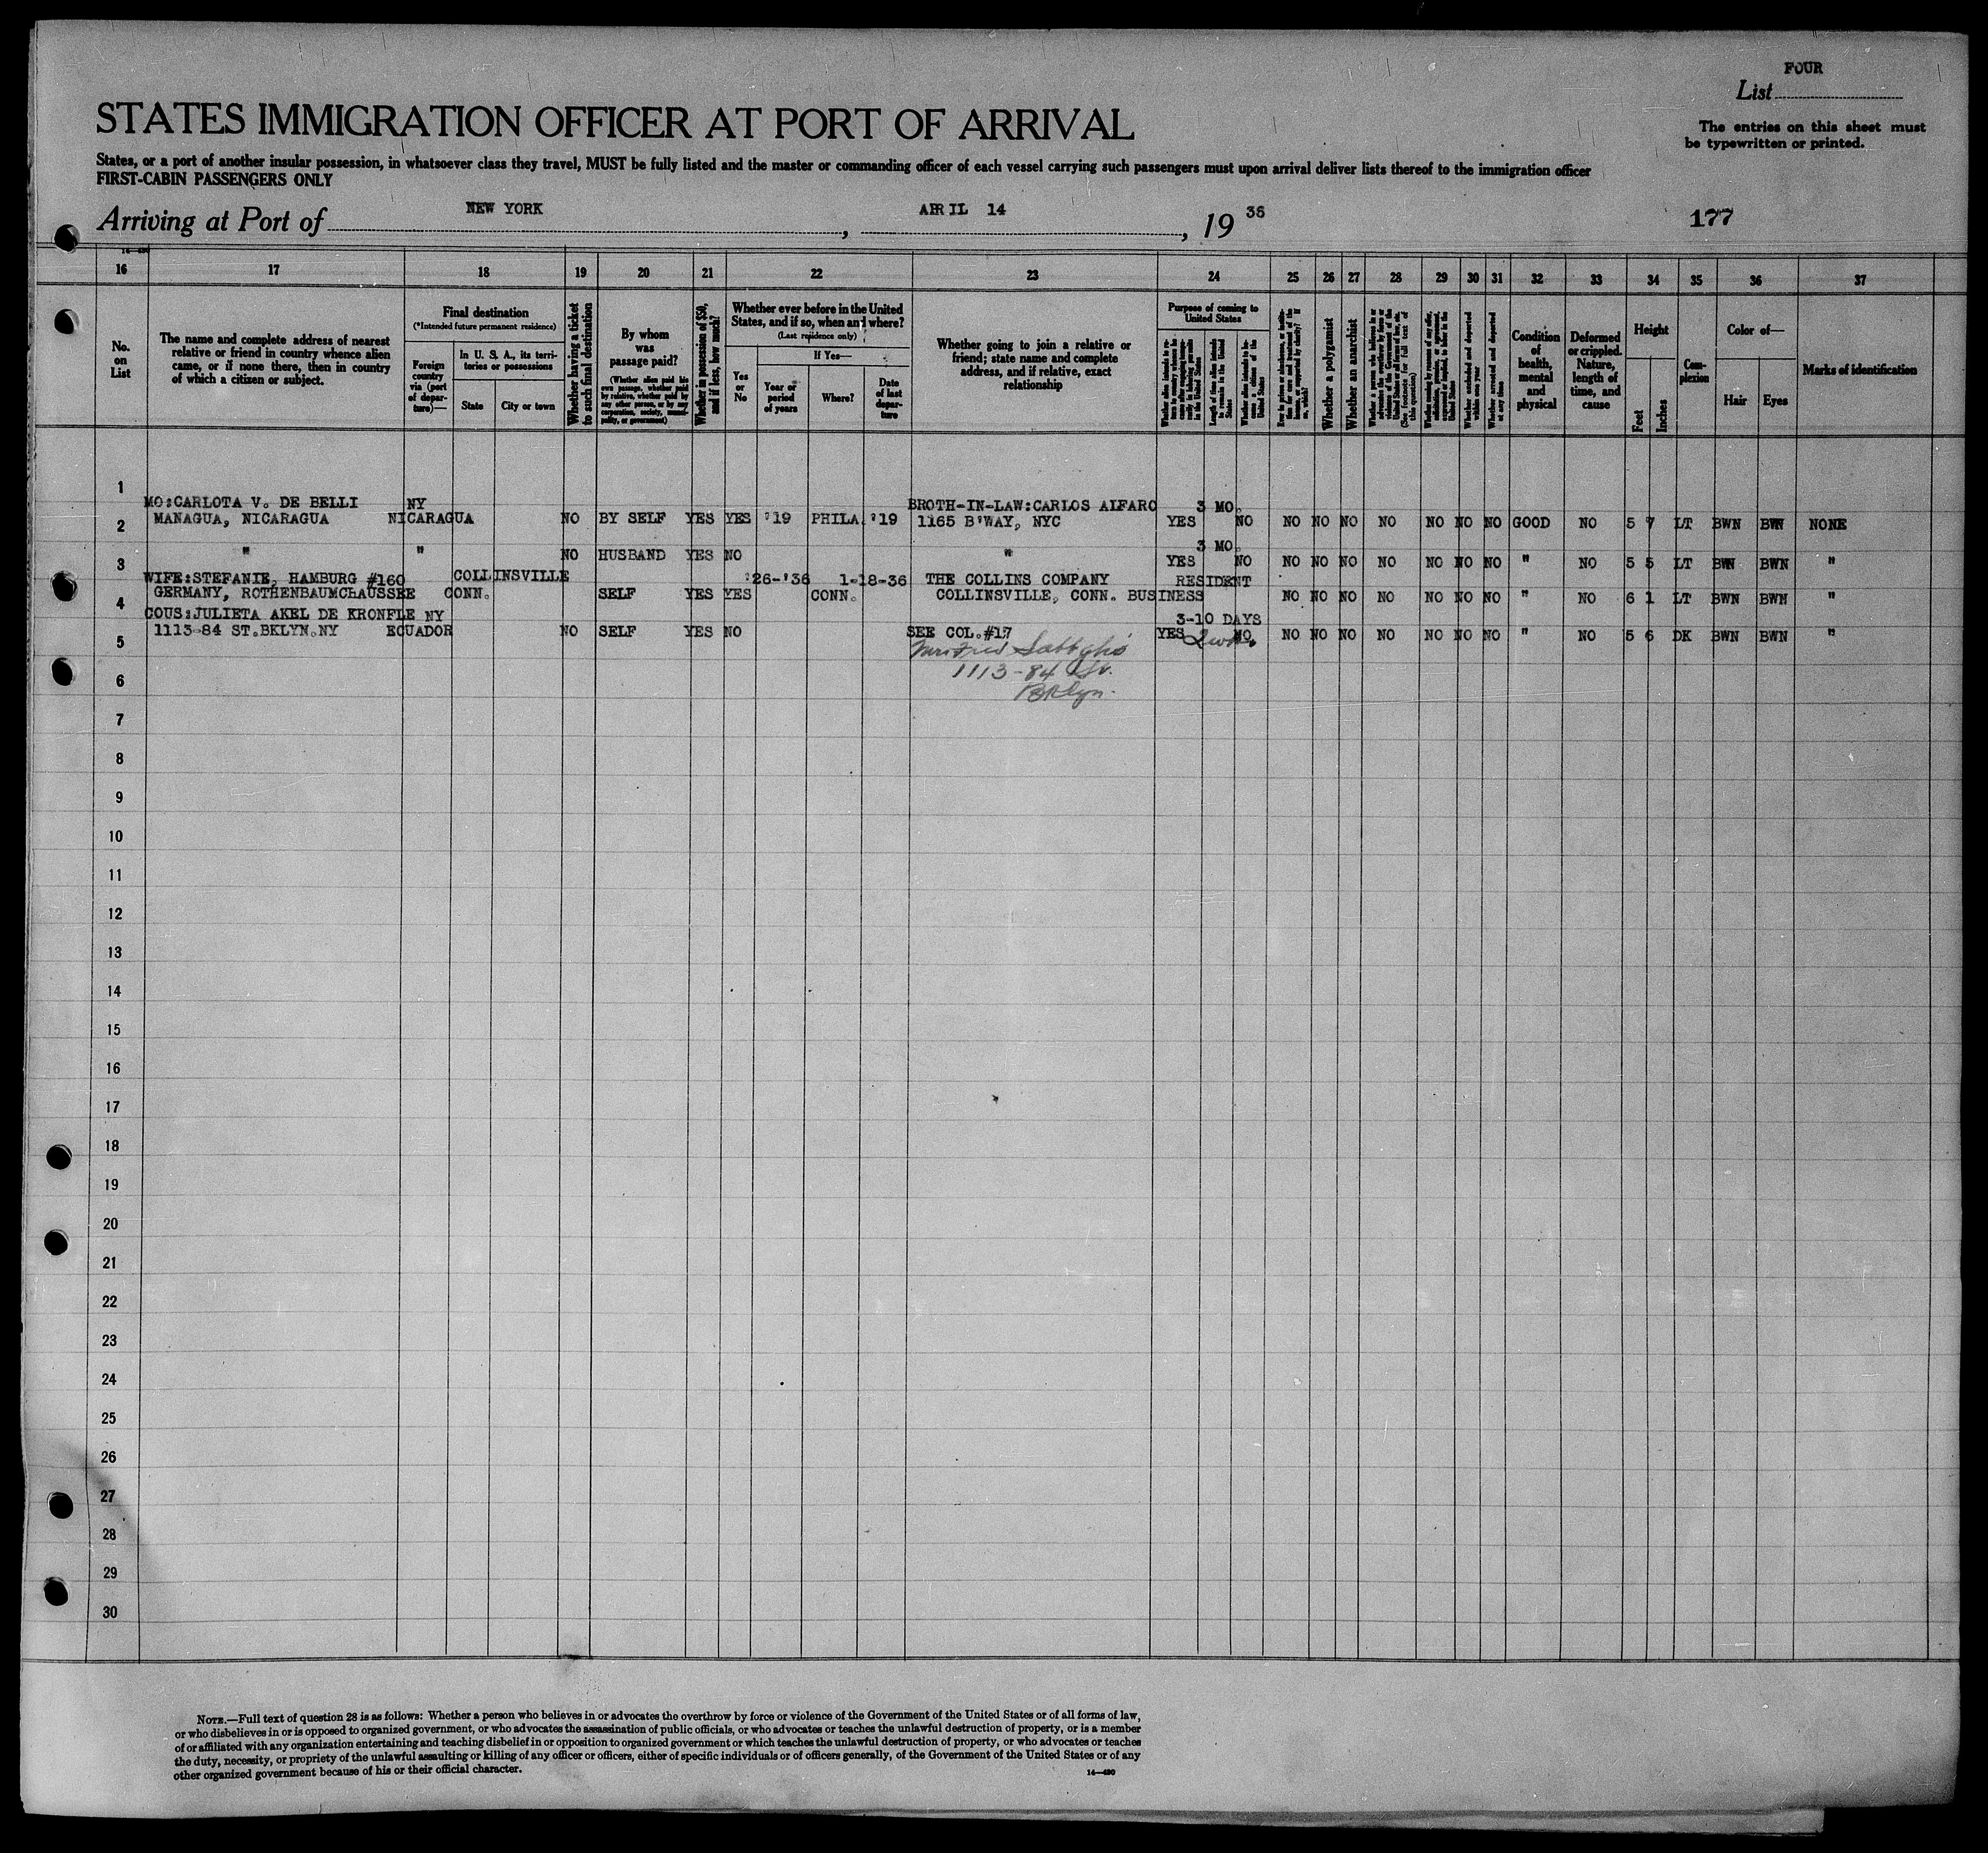 FOUR
List
The entries on this sheet must
be typewritten or printed.
STATES IMMIGRATION OFFICER AT PORT OF ARRIVAL
States, or a port of another insular possession, in whatsoever class they travel, MUST be fully listed and the master or commanding officer of each vessel carrying such passengers must upon arrival deliver lists thereof to the immigration officer
FIRST-CABIN PASSENGERS ONLY
Arriving at Port of NEW YORK, APRIL 14, 1936
177
16 17 18 19 20 21 22 23 24 25 26 27 28 29 30 31 32 33 34 35 36 37
No. on List
The name and complete address of nearest
relative or friend in country whence alien
came, or if none there, then in country
of which a citizen or subject.
Final destination
(*Intended future permanent residence)
Foreign country via (port of departure)—
In U. S. A., its territories or possessions
State
City or town
Whether having a ticket to such final destination
By whom was passage paid?
(Whether alien paid his own passage, whether paid by relative, whether paid by any other person, or by any corporation, society, municipality, or government)
Whether in possession of $50, and if less, how much?
Whether ever before in the United States, and if so, when and where?
(Last residence only)
Yes or No
If Yes—
Year or period of years
Where?
Date of last departure
Whether going to join a relative or
friend; state name and complete
address, and if relative, exact
relationship
Purpose of coming to United States
Length of time alien intends to remain in the United States
Whether alien intends to become a citizen of the United States
Whether a polygamist
Whether an anarchist
Whether arrested and deported at any time
Condition of health, mental and physical
Deformed or crippled. Nature, length of time, and cause
Height
Feet
Inches
Complexion
Color of—
Hair
Eyes
Marks of identification
1
MO:CARLOTA V. DE BELLI NY BROTH-IN-LAW:CARLOS ALFARO 3 MO.
2 MANAGUA, NICARAGUA NICARAGUA NO BY SELF YES YES '19 PHILA. '19 1165 B'WAY, NYC YES NO NO NO NO NO NO NO NO GOOD NO 5 7 LT BWN BWN NONE
3 MO.
3 " " NO HUSBAND YES NO " YES NO NO NO NO NO NO NO NO " NO 5 5 LT BWN BWN "
WIFE:STEFANIE, HAMBURG #160 COLLINSVILLE '26-'36 1-18-36 THE COLLINS COMPANY RESIDENT
4 GERMANY, ROTHENBAUMCHAUSSEE CONN. SELF YES YES CONN. COLLINSVILLE, CONN. BUSINESS NO NO NO NO NO NO NO " NO 6 1 LT BWN BWN "
COUS:JULIETA AKEL DE KRONFLE NY 3-10 DAYS
5 1113-84 ST.BKLYN.NY ECUADOR NO SELF YES NO SEE COL.#17 YES NO NO NO NO NO NO NO NO " NO 5 6 DK BWN BWN "
1113-84 St.
6
Bklyn.
7
8
9
10
11
12
13
14
15
16
17
18
19
20
21
22
23
24
25
26
27
28
29
30
NOTE.—Full text of question 28 is as follows: Whether a person who believes in or advocates the overthrow by force or violence of the Government of the United States or of all forms of law,
or who disbelieves in or is opposed to organized government, or who advocates the assassination of public officials, or who advocates or teaches the unlawful destruction of property, or is a member
of or affiliated with any organization entertaining and teaching disbelief in or opposition to organized government or which teaches the unlawful destruction of property, or who advocates or teaches
the duty, necessity, or propriety of the unlawful assaulting or killing of any officer or officers, either of specific individuals or of officers generally, of the Government of the United States or of any
other organized government because of his or their official character.
14—430